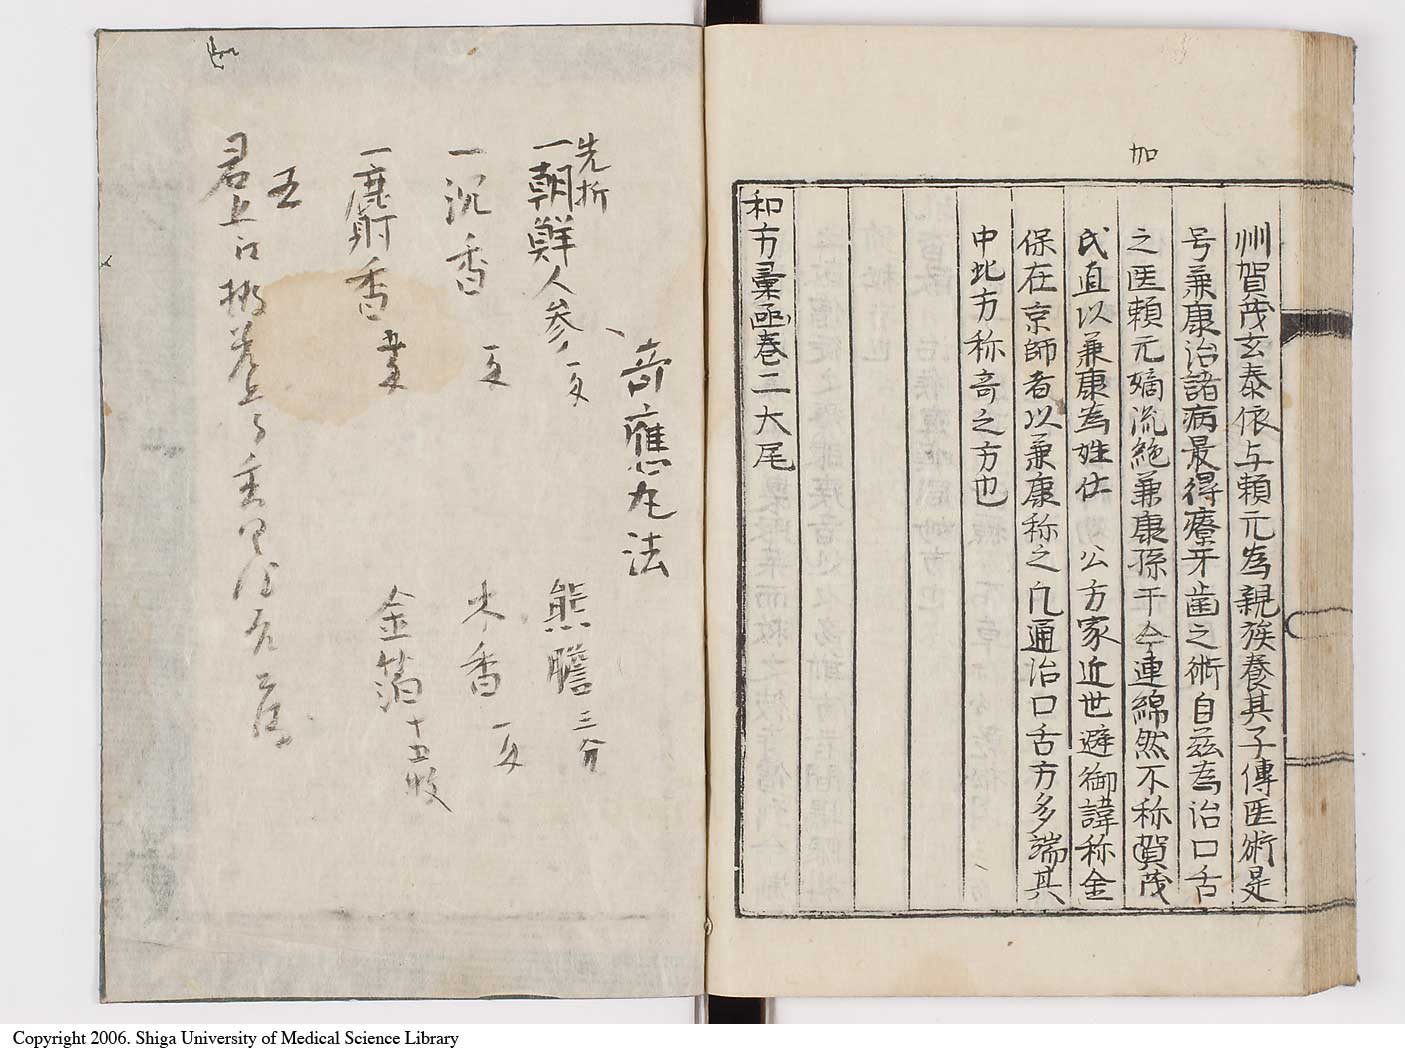 加
州賀茂玄泰依与頼元為親族養其子傳匠術是
号兼康治諸病最得療牙歯之術自茲為治口舌
之匠頼元嫡流絶兼康孫于今連綿然不称賀茂
氏直以兼康為姓仕 公方家近世避御諱称金
保在京師者以兼康称之凢通治口舌方多端其
中此方称奇之方也
和方彙函巻二大尾
奇應丸法
先折
一朝鮮人参 一匁 熊膽 三分
一沉香 一匁 木香 一匁
一麝香 金箔 十五枚
五
君上
Copyright 2006. Shiga University of Medical Science Library